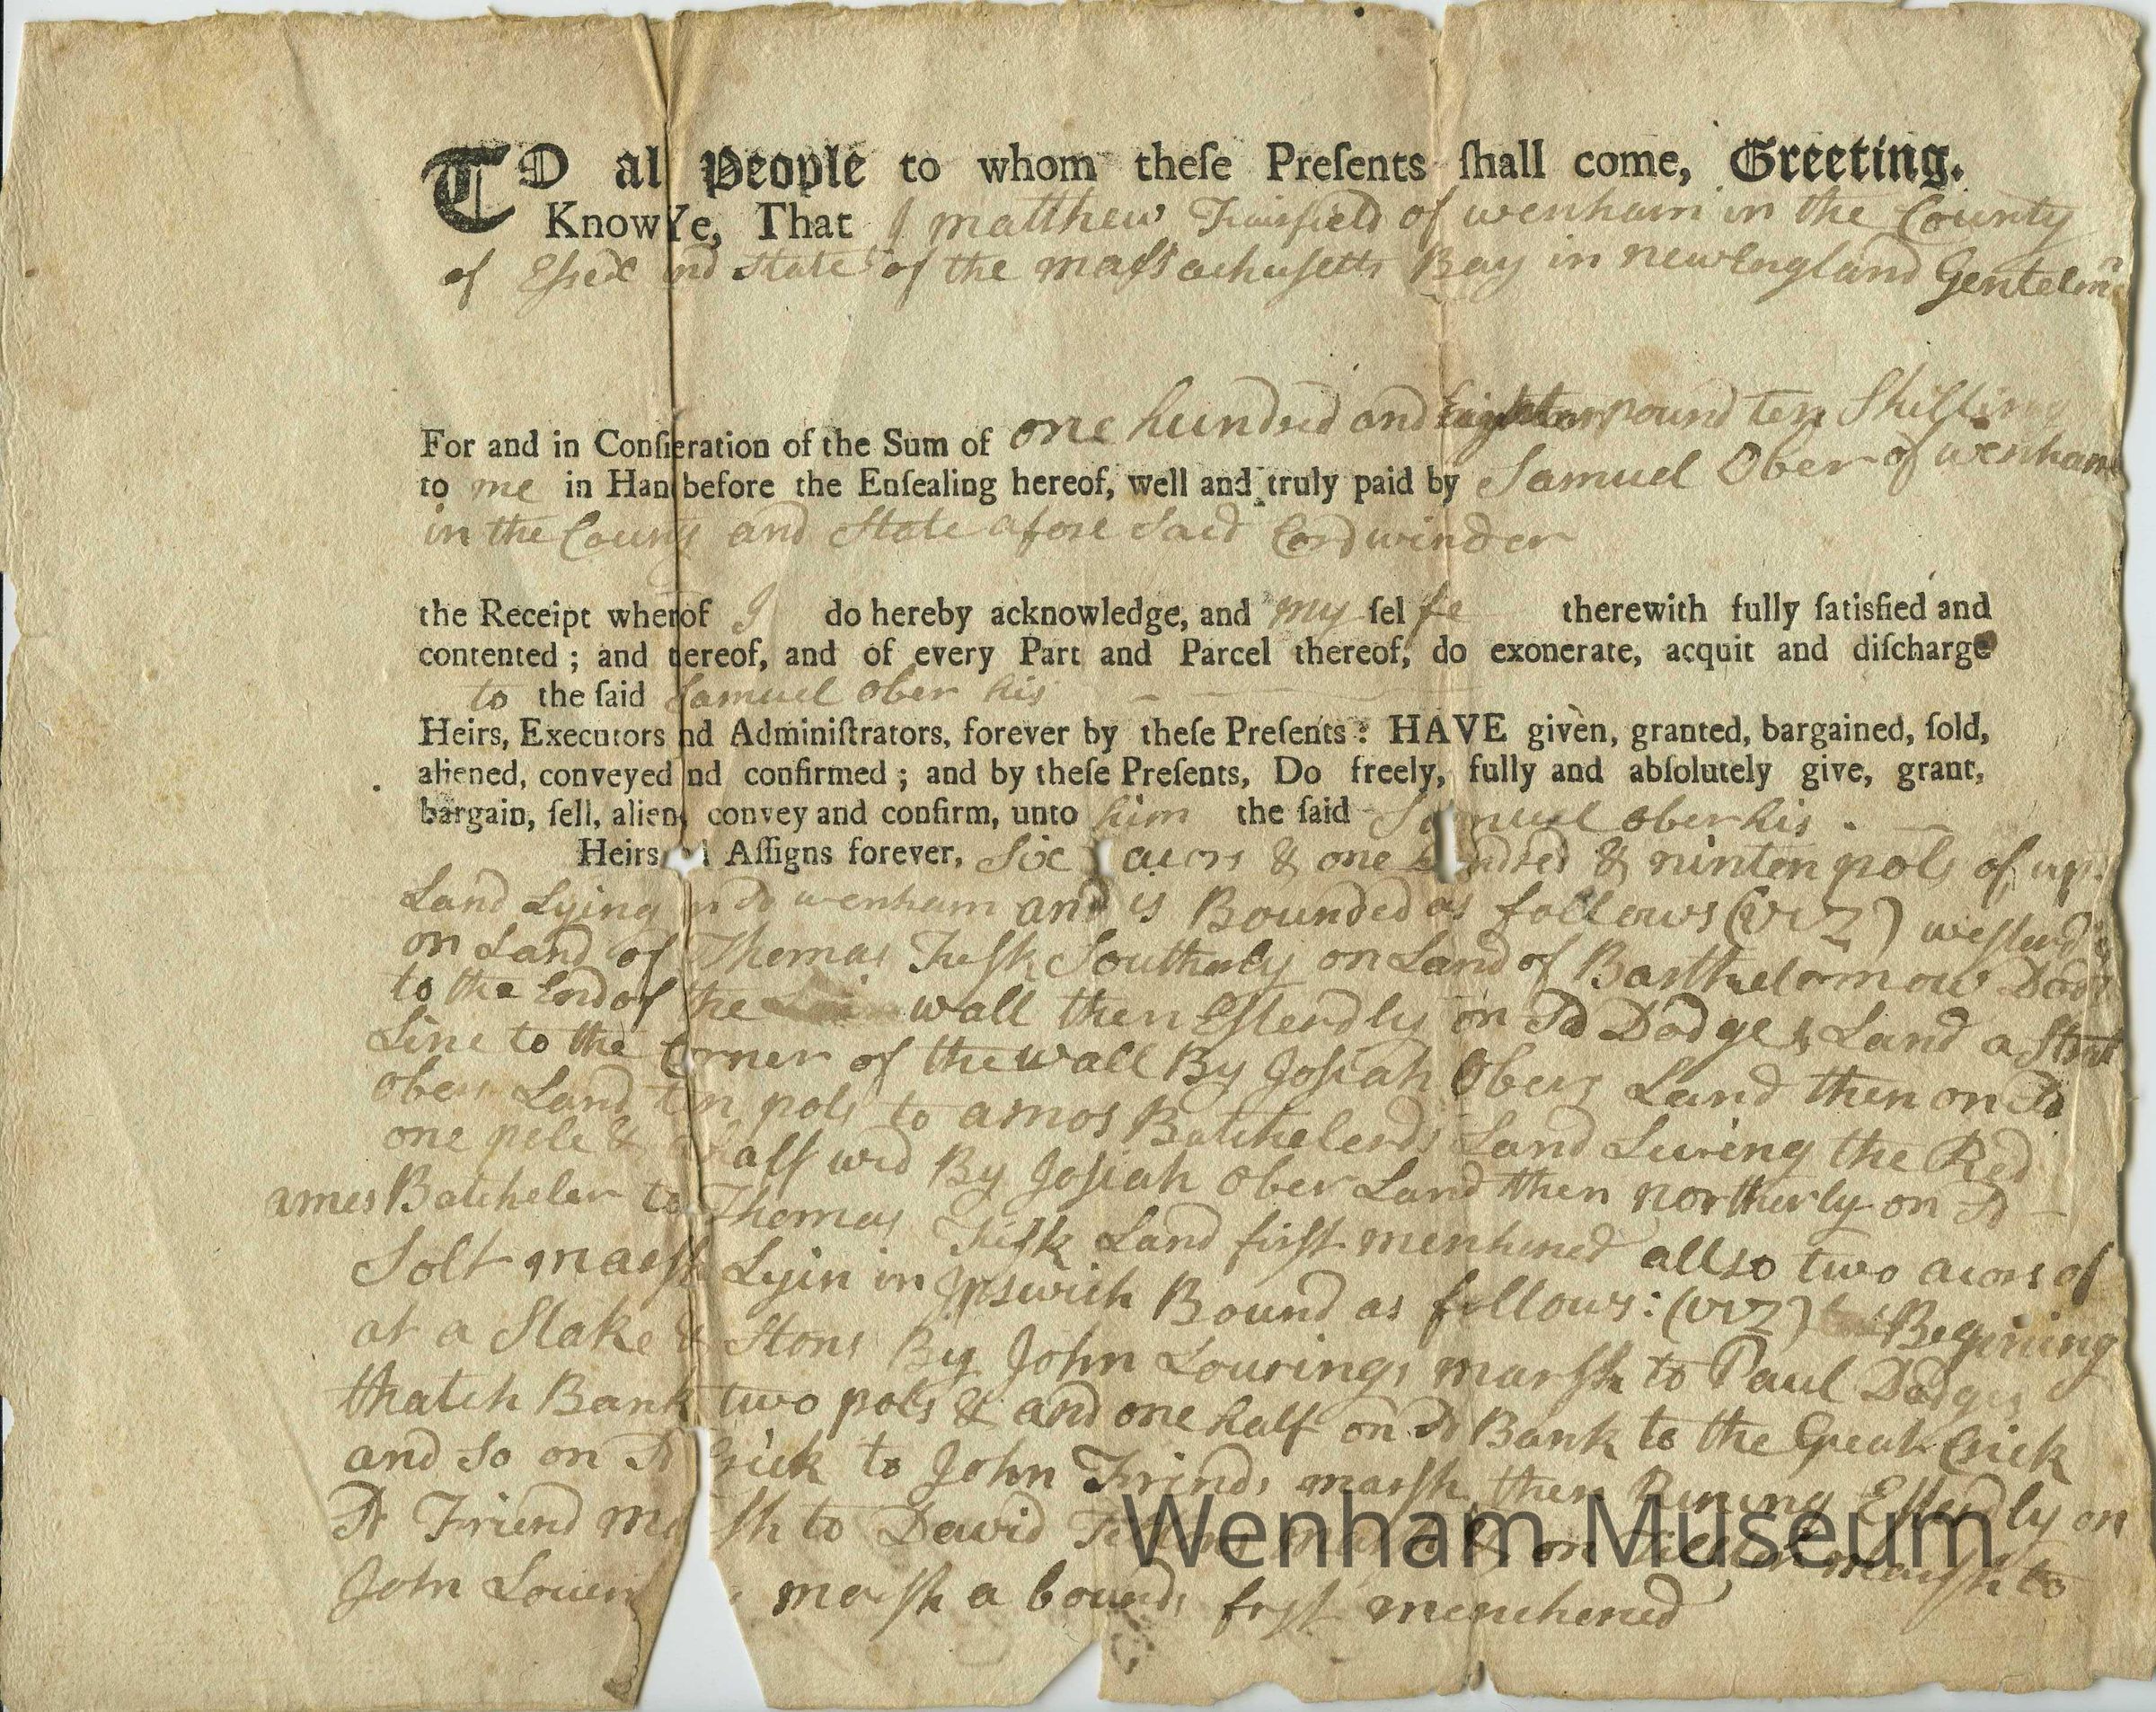 TO al People to whom theſe Preſents ſhall come, Greeting.
Know Ye, That I matthew Fairfield of wenham in the County
of Essex nd state of the massachusetts Bay in newEngland Gentelmn
For and in Conſieration of the Sum of one hundred and pound ten Shilling
to me in Han before the Enſealing hereof, well and truly paid by Samuel Ober of wenham
in the County and State afore Said Cordwinder
the Receipt wherof I do hereby acknowledge, and my ſel fe therewith fully ſatisfied and
contented ; and hereof, and of every Part and Parcel thereof, do exonerate, acquit and diſcharge
to the ſaid Samuel Ober his
Heirs, Executors nd Adminiſtrators, forever by theſe Preſents : HAVE given, granted, bargained, ſold,
aliened, conveyed nd confirmed ; and by theſe Preſents, Do freely, fully and abſolutely give, grant,
bargain, ſell, alien, convey and confirm, unto him the ſaid Samuel Ober his .
Heirs Aſſigns forever, Six acors & one hundred & ninten pols of up
Land Lying in Sd wenham and is Bounded as follows (viz)
on Land of Thomas Fisk Southerly on Land of Barthelommow Dodg
to the End of the wall then Esterdly on Sd Dodges Land a Strat
Line to the Corner of the wall By Josiah Obers Land then on Sd
Obers Land ten pols to amos Batchelerds Land Luving the Red
one pole & a half wid By Josiah Ober Land then northerly on Sd
ames Batcheler to Thomas Fisk Land first menhened allso two acors of
Solt marsh Lyin in Ipswich Bound as follows : (viz) Begining
at a Stake & Stons By John Lourings marsh to Paul Dodges
thatch Bank two pols & and one half on Sd Bank to the Great Crick
and So on Sd Crick to John Frinds marsh then Runing Esterdly on
Sd Friend marsh to David marsh & on marsh to
John Louer marsh a bounds first menchened
Wenham Museum